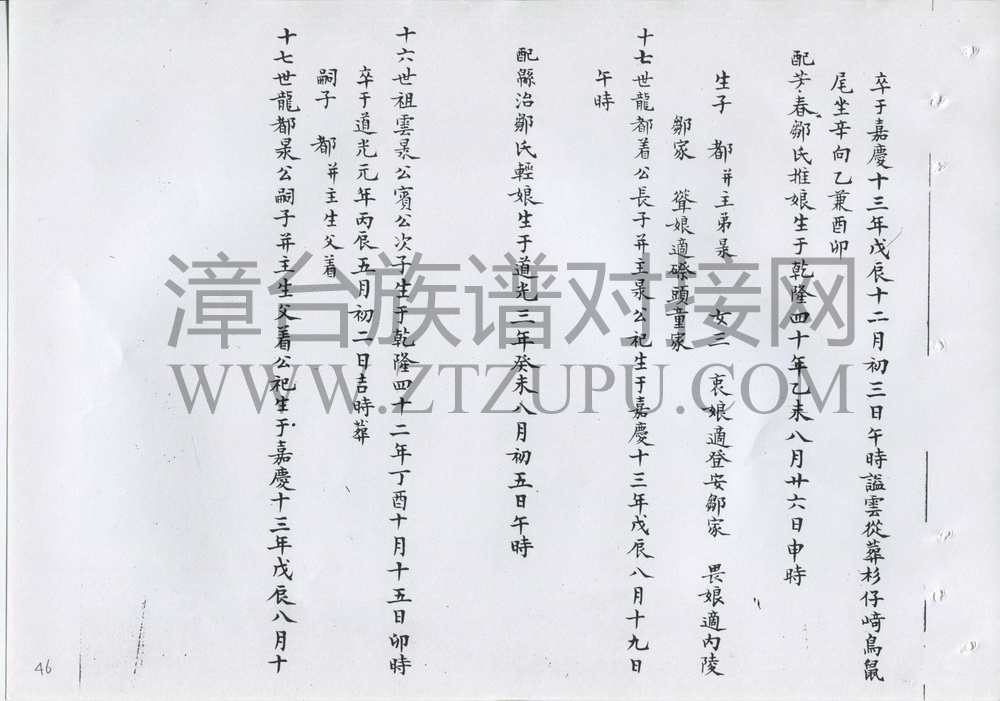 卒于嘉慶十三年戊辰十二月初三日午時謚雲從葬杉仔崎鳥鼠
尾坐辛向乙兼酉卯
配芳春鄒氏推娘生于乾隆四十年乙未八月廿六日申時
生子 都并主弟景 女三 衷娘適登安鄒家 畏娘適內陵
鄒家 聳娘適磜頭童家
十七世龍都着公長子并主景公祀生于嘉慶十三年戊辰八月十九日
午時
配縣治鄒氏輕娘生于道光三年癸未八月初五日午時
十六世祖雲景公賓公次子生于乾隆四十二年丁酉十月十五日卯時
卒于道光元年丙辰五月初二日吉時葬
嗣子 都并主生父着
十七世龍都景公嗣子并主生父着公祀生于嘉慶十三年戊辰八月十
漳台族谱对接网
WWW.ZTZUPU.COM
46